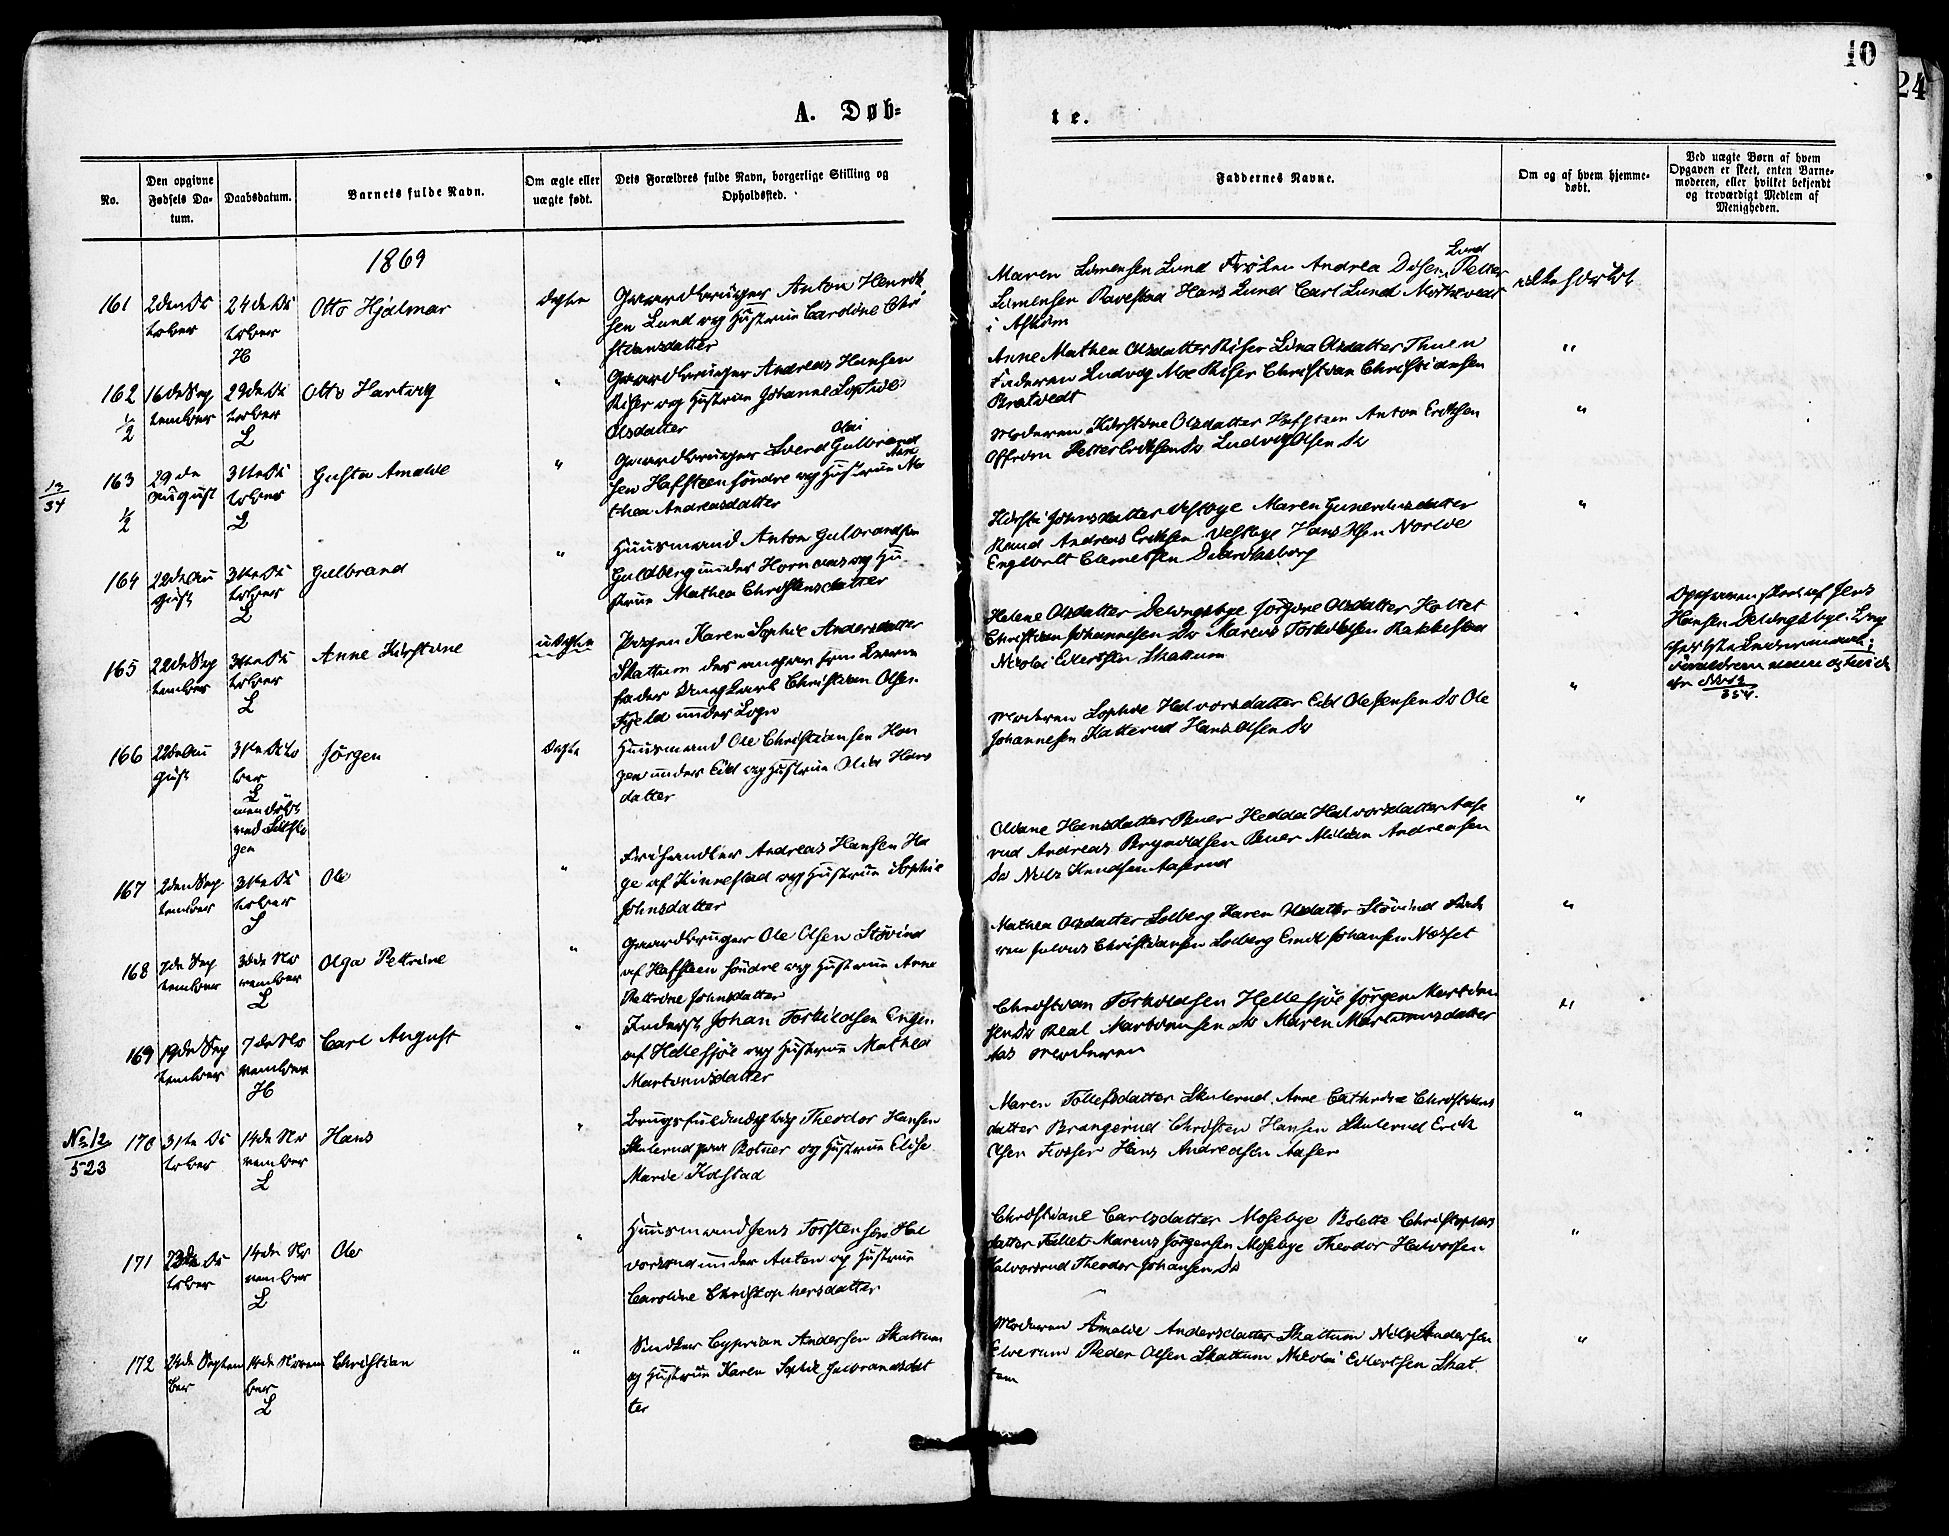 10
24
A. Døb-
te.
No.
Den opgivne
Fødsels Da-
tum.
Daabsdatum.
Barnets fulde Navn.
Om ægte eller
uægte født.
Dets Forældres fulde Navn, borgerlige Stilling og
Opholdssted.
Faddernes Navne.
Om og af hvem hjemme-
døbt.
Ved uægte Børn af hvem
Opgaven er skeet, enten Barne-
moderen, eller hvilket bekjendt
og troværdigt Medlem af
Menigheden.
1869
161
2den Oc
tober
24de Oc
tober
H
Otto Hjalmar
Ægte
Gaardbruger Anton Henrik
sen Lund og Hustrue Caroline Chri
stiansdatter
Maren Simensen Lund Frøken Andrea Disen Lund Petter
Simensen Ravestad Hans Lund Carl Lund
i Askim
162
1/2
16de Sep
tember
29de Oc
tober
L
Otto Hartvig
"
Gaardbruger Andreas Hansen
Riser og Hustrue Johanne Sophie
Olsdatter
Anne Mathea Olsdatter Riser Lina Olsdatter Thuen
Faderen Ludvig Moe Riser Christian Christiansen
Bratvedt
"
13/34
163
1/2
29de
August
31te Oc
tober
L
Gusta Amalie
"
Gaardbruger Svend Olai Gulbrand
sen Hafsteen søndre og Hustrue Anne Ma
thea Andreasdatter
Moderen Kirstine Olsdatter Hafsteen Anton Eriksen
Petter Eriksen Do Ludvig Olsen Do
"
164
22de Au
gust
31te Oc
tober
L
Gulbrand
"
Huusmand Anton Gulbrandsen
Guldberg under Hornæs og Hu
strue Mathea Christensdatter
Kirsti Johnsdatter Vestbye Maren Guneriusdatter
Raud Andreas Eriksen Vestbye Hans Olsen Norlie
Engebret Clemetsen
"
165
22de Sep
tember
31te Oc
tober
L
Anne Kirstine
uÆgte
Pigen Karen Sophie Andersdatter
Skattum der angav som Barne
fader Ungkarl Christian Olsen
Fjeld under Sogn
Helene Olsdatter Delingsbye Jørgine Olsdatter Holtet
Christian Johannesen Do Marcus Torkildsen Rakkestad
Nicolai Edvertsen Skattum
"
Opgaven skeet af Jens
Hansen Delingsbye
166
22de Au
gust
31te Octo
ber
L
Jørgen
Ægte
Huusmand Ole Christiansen Kon
gen under Eid og Hustrue Oline Hans
datter
Moderen Sophie Halvorsdatter Eid Ole Jensen Do Ole
Johannesen Katterud Hans Olsen Do
"
167
2den Sep
tember
31te Oc
tober
L
Ole
"
Frihandler Andreas Hansen Ha
ge af Kinnestad og Hustrue Sophie
Johnsdatter
Oliane Hansdatter Buer Hedda Halvorsdatter Aase
rud Andreas Brynildsen Buer Milian Andreasen
Do Nils Knudsen Aaserud
"
168
7de Sep
tember
No
vember
L
Olga Pettrine
"
Gaardbruger Ole Olsen Støvind
af Hafsteen søndre og Hustrue Anne
Pettrine Johnsdatter
Mathea Olsdatter Solberg Karen Olsdatter Støvind Fade
ren Julius Christiansen Solberg Emil Johansen Næset
"
169
19de Sep
tember
7de No
vember
H
Carl August
"
Inderst Johan Torkildsen Engen
af Hellesjøe og Hustrue Mathea
Martinusdatter
Christian Torkildsen Hellesjøe Jørgen Martin
sen Do Martinusen Do Maren Martinusdatter
Aas Moderen
"
No 12
523
170
31te Oc
tober
14de No
vember
L
Hans
"
Brugsfuldmægtig Theodor Hansen
Skulerud paa Botner og Hustrue Elise
Marie Kolstad
Maren Tollefsdatter Skulerud Anne Cathrine Christians
datter Brangerud Christen Hansen Skulerud Erik
Olsen Fosser Hans Andreasen Aaser
"
171
23de Oc
tober
14de No
vember
L
Ole
"
Huusmand Jens Torstensen Hal
vorsrud under Anten og Hustrue
Caroline Christophersdatter
Christiane Carlsdatter Mosebye Bolette Christophers
datter Marcus Jørgensen Mosebye Theodor Halvorsen
Halvorsrud Theodor Johansen Do
"
172
24de Septem
ber
14de Novem
ber
L
Christian
"
Snedker Cyprian Andersen Skattum
og Hustrue Karen Sophie Gulbrandsdat
ter
Moderen Amalie Andersdatter Skattum Nils Andersen
Elverum Peder Olsen Skattum Nicolai Edvertsen Skat
tum
"